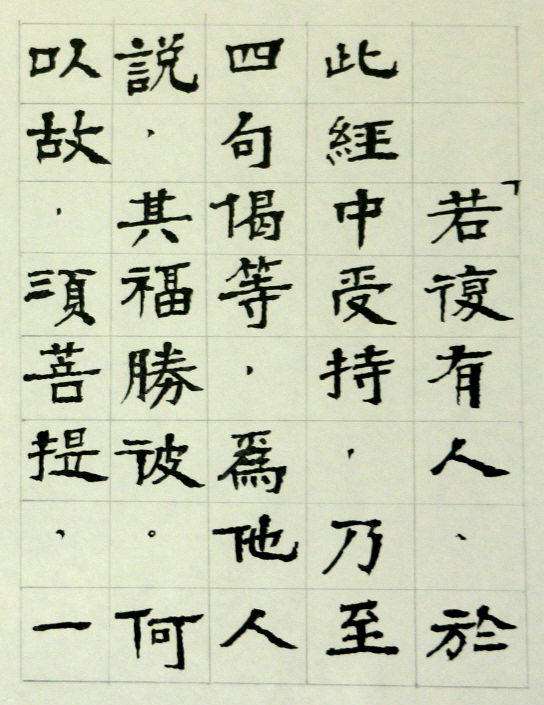 「若復有人、於
此經中受持、乃至
四句偈等、為他人
說、其福勝彼。何
以故、須菩提、一